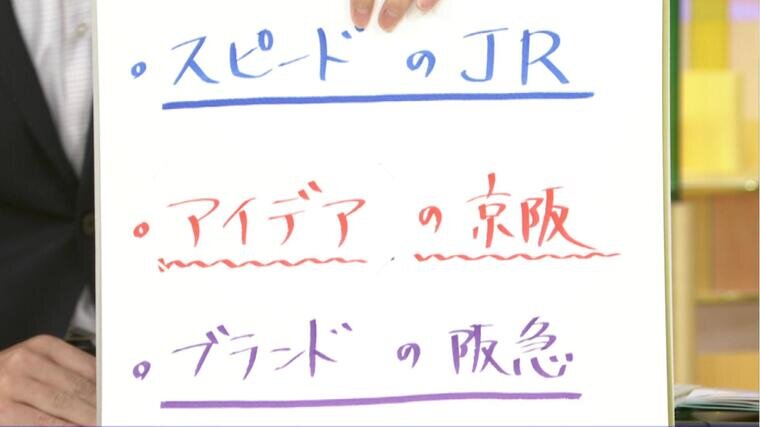 。スピードのJR
。アイデアの京阪
。ブランドの阪急